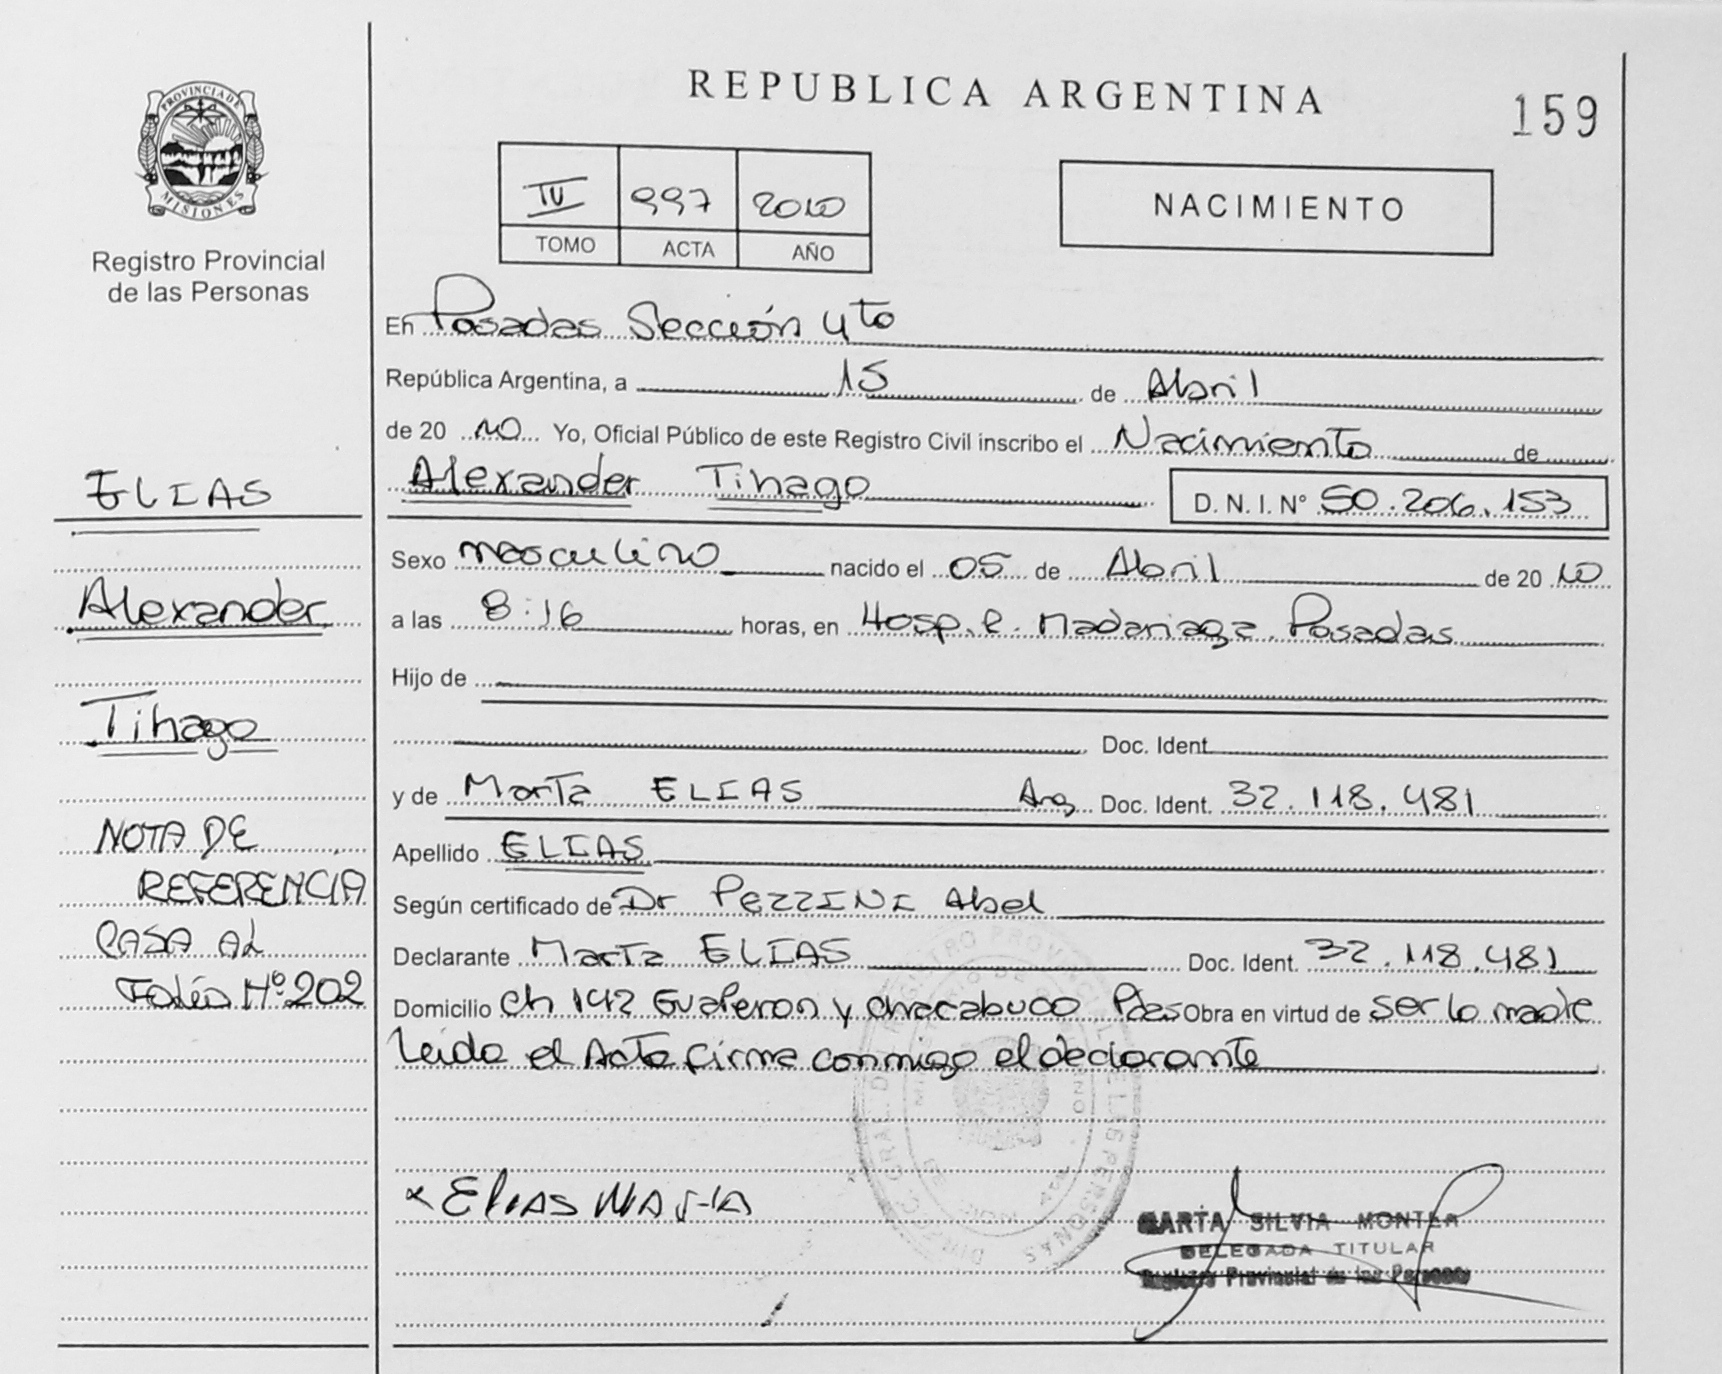 PROVINCIA DE
MISIONES
Registro Provincial
de las Personas
ELIAS
Alexander
Tihago
NOTA DE
REFERENCIA
PASA AL
Folio Nº 202
REPUBLICA ARGENTINA
159
IV 997 2010
TOMO ACTA AÑO
NACIMIENTO
En Posadas Sección 4to
República Argentina, a 15 de Abril
de 20 10 Yo, Oficial Público de este Registro Civil inscribo el Nacimiento de
Alexander Tihago D. N. I. N° 50.206.153
Sexo masculino nacido el 05 de Abril de 20 10
a las 8:16 horas, en Hosp. R. Madariaga Posadas
Hijo de
Doc. Ident.
y de Marta ELIAS Arg Doc. Ident. 32.118.481
Apellido ELIAS
Según certificado de Dr PEZZINI Abel
Declarante Marta ELIAS Doc. Ident. 32.118.481
Domicilio Ch 142 y Chacabuco Pdas Obra en virtud de ser la madre
Leida el Acta firma conmigo el declarante
x ELIAS MARTA
MARTA SILVIA
DELEGADA TITULAR
Registro Provincial de las Personas